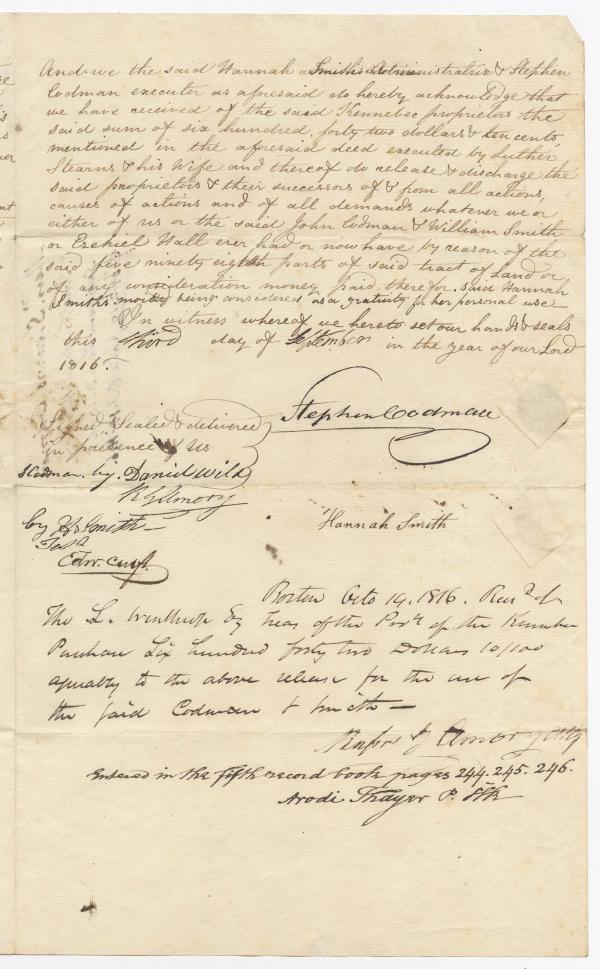 And we the said Hannah Smith Administratrix & Stephen
Codman executor as aforesaid do hereby acknowledge that
we have received of the said Kennebec proprietors the
said sum of six hundred, forty two dollars & ten cents,
mentioned in the aforesaid deed executed by Luther
Stearns & his Wife and thereof do release & discharge the
said proprietors & their successors of & from all actions,
causes of actions and of all demands whatever we or
either of us or the said John Codman & William Smith
or Ezekiel Hall ever had or now have by reason of the
said five ninety eighth parts of said tract of Land or
of any consideration money paid therefor. Said Hannah
Smith's moiety being considered as a gratuity for her personal use
In witness whereof we hereto set our hands & seals
this third day of September in the year of our Lord
1816.
Signed Sealed & delivered
in presence of us
Stephen Codman
SCodman. by. Daniel Wild
R G Amory
by H. Smith
Hannah Smith
Edw. Cruft.
Boston Octo 14. 1816. Rec'd of
The L. Winthrop Esq Treas of the Pro'rs of the Kennebec
Purchase Six hundred forty two Dollars 10/100
agreeably to the above release for the use of
the said Codman & Smith
Amory atty
Entered in the fifth record book pages 244. 245. 246.
Arodi Thayer P. Clk